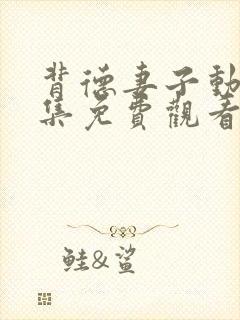 背德妻子動
集免費觀看
鮭&鯊